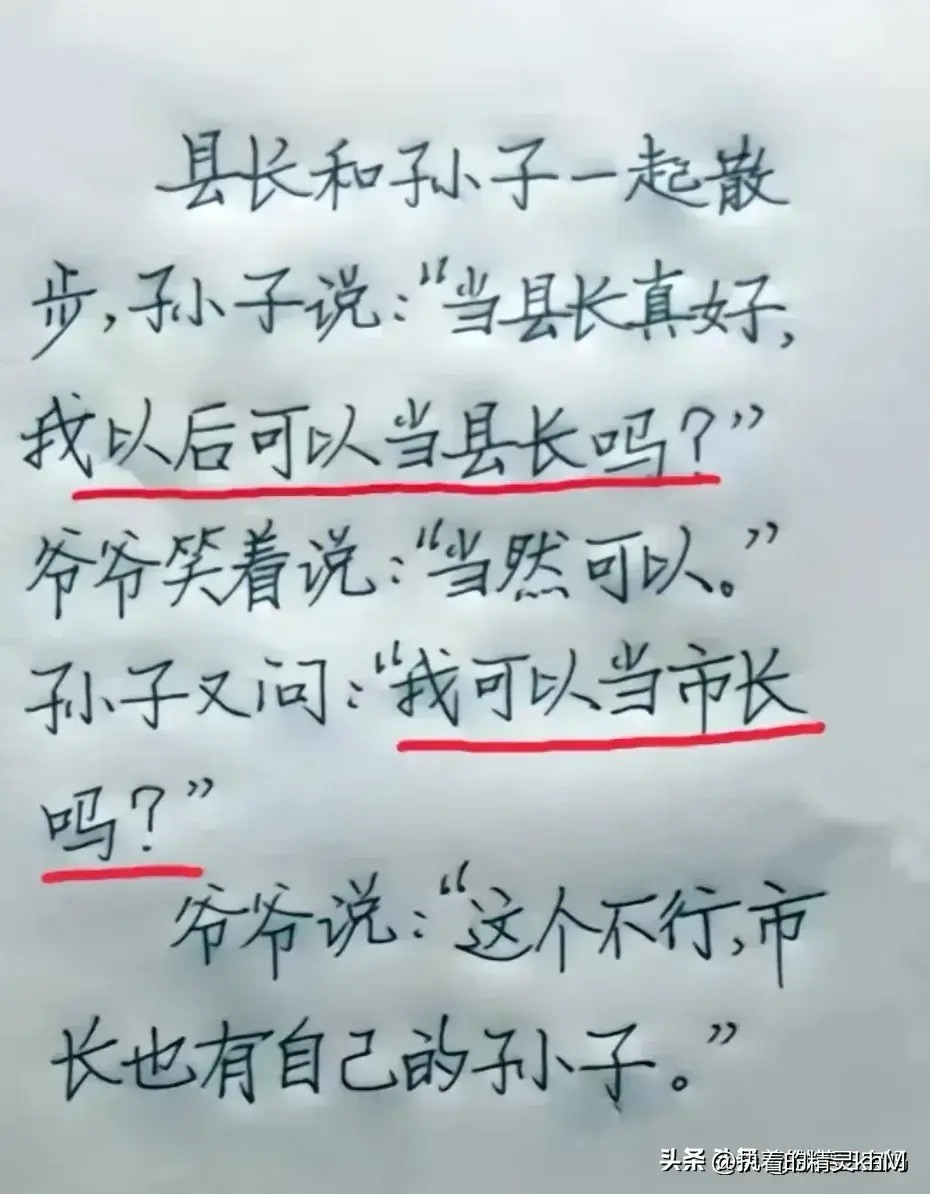 县长和孙子一起散
步,孙子说:“当县长真好,
我以后可以当县长吗?”
爷爷笑着说:“当然可以。”
孙子又问:“我可以当市长
吗?”
爷爷说:“这个不行,市
长也有自己的孙子。”
头条